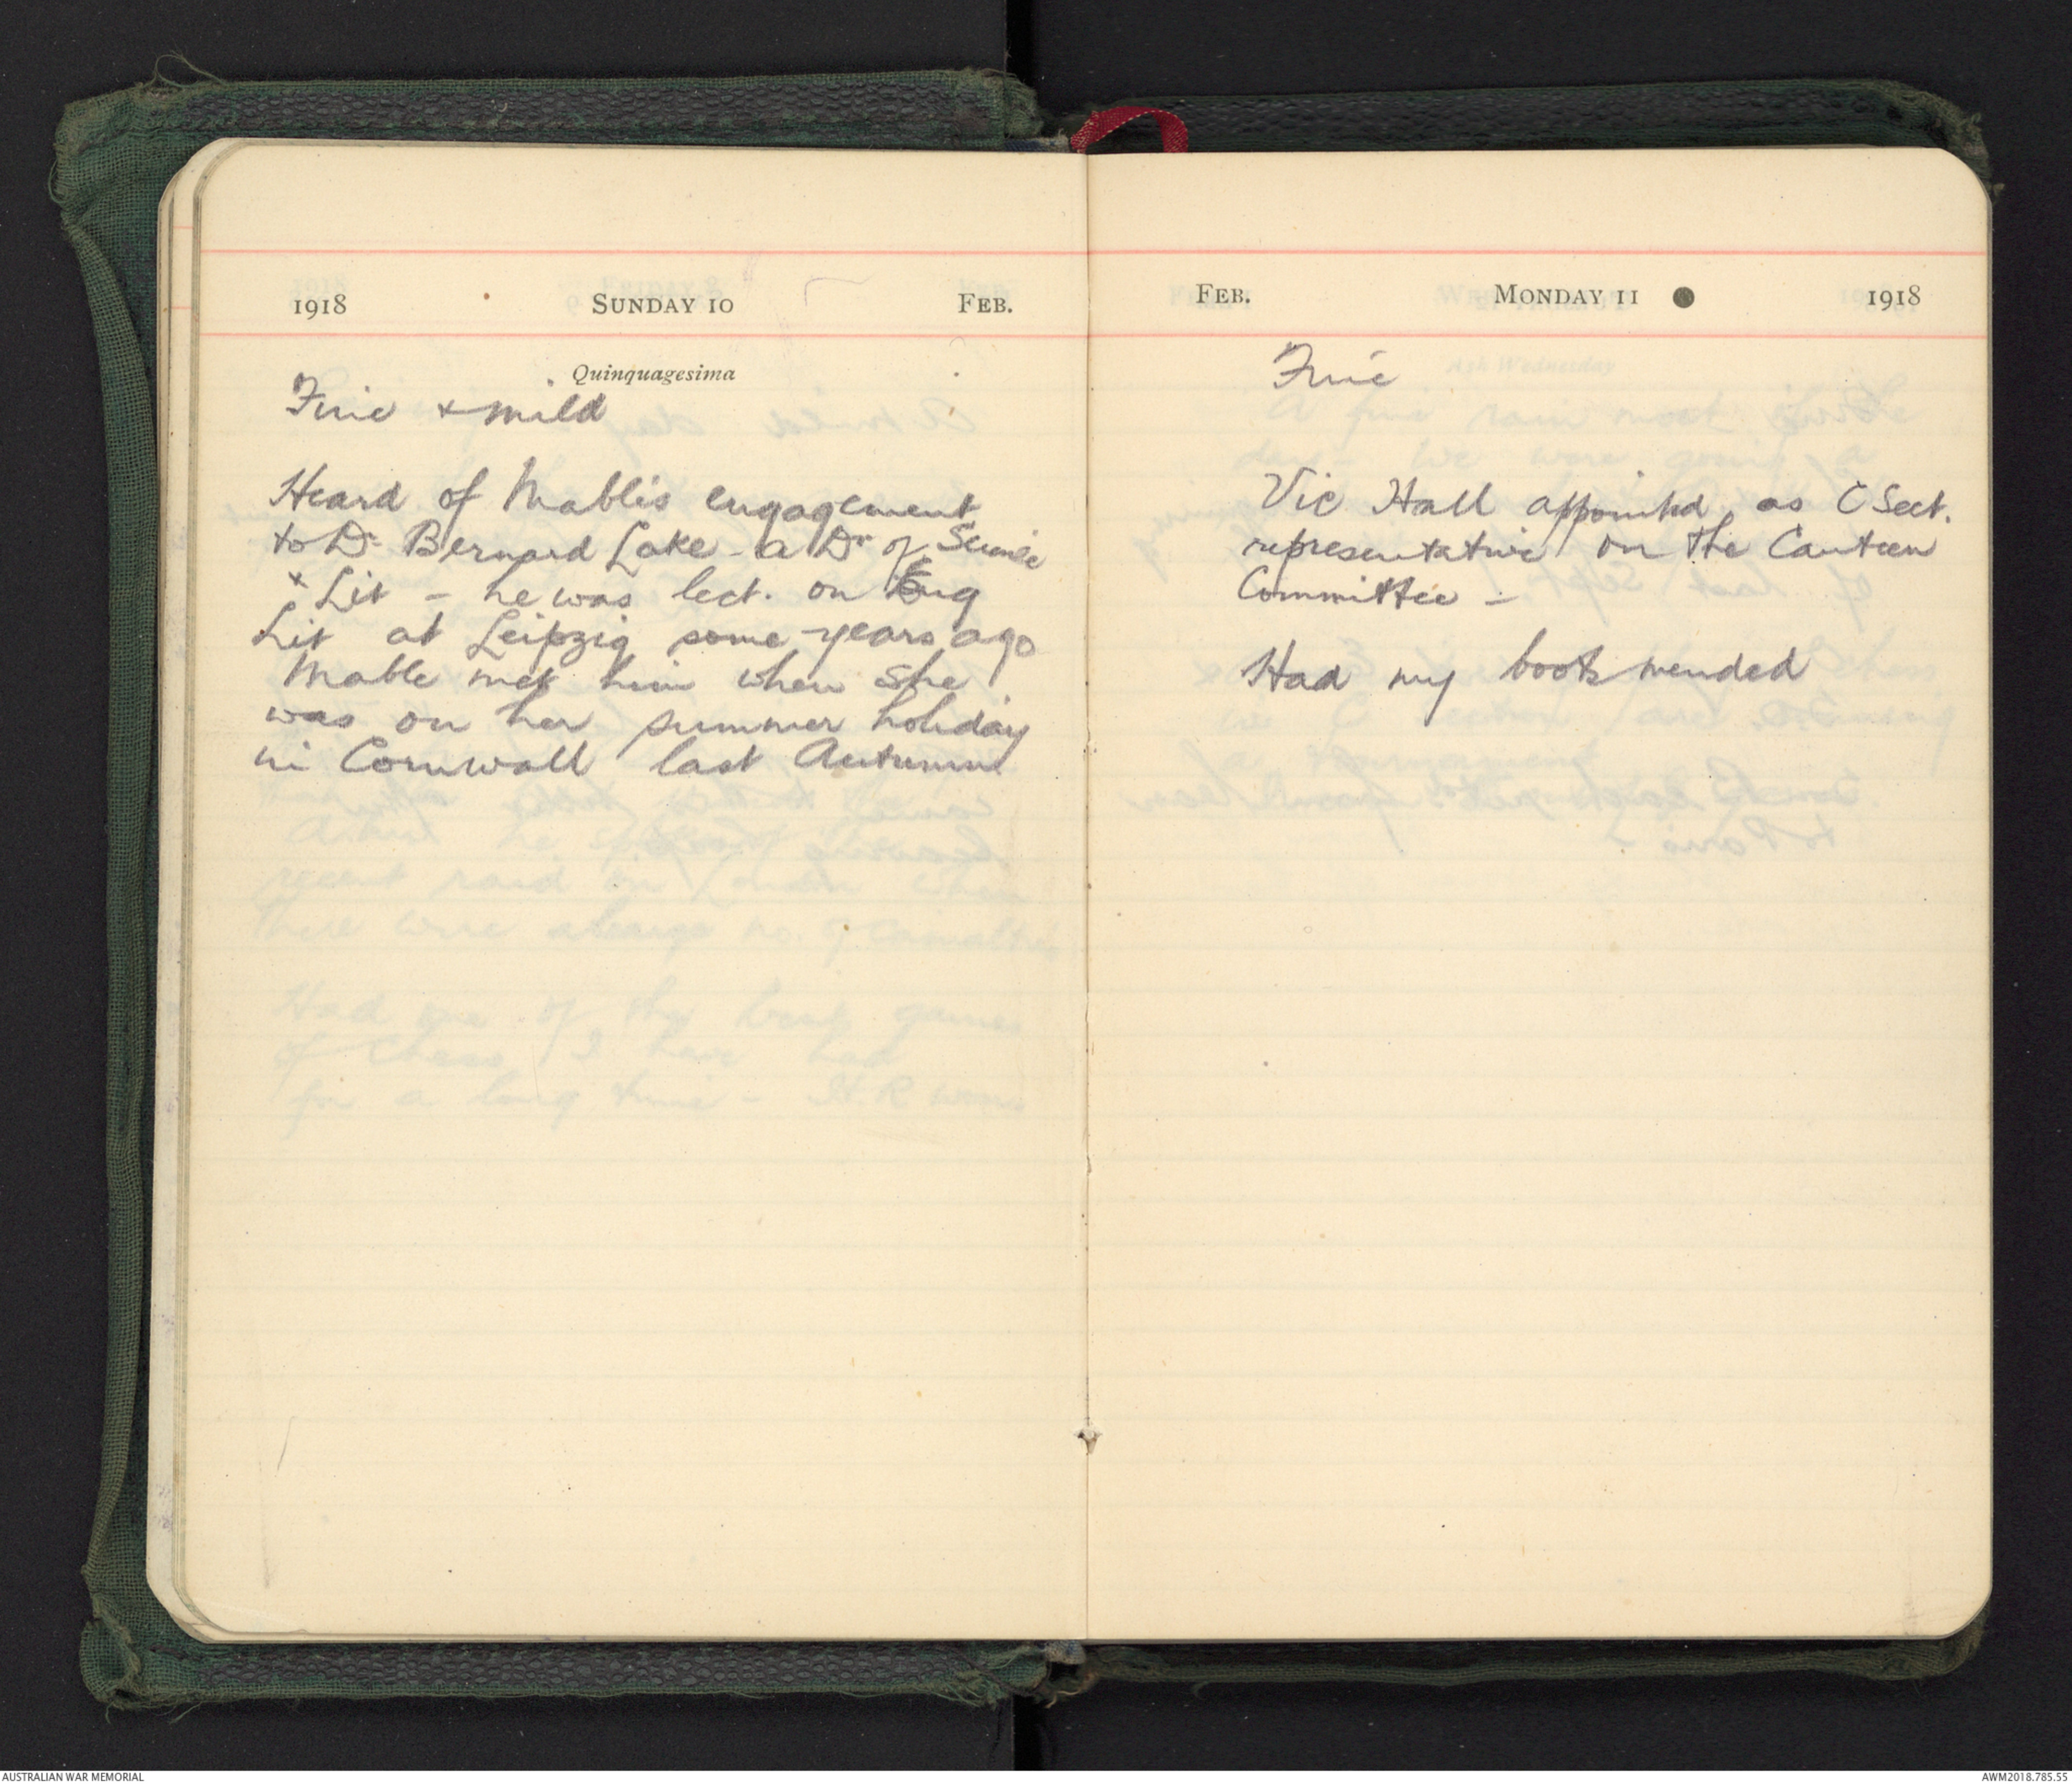 1918 SUNDAY 10 FEB.
Quinquagesima
Fine & mild
Heard of Mable's engagement
to Dr Bernard Lake - a Dr of Science
& Lit - he was lect. on Eng
Lit at Leipzig some years ago
Mable met him when she
was on her summer holiday
in Cornwall last Autumn
FEB. MONDAY 11 1918
Fine
Vic Hall appointed as C Sect.
representative on the Canteen
Committee -
Had my boots mended
AUSTRALIAN WAR MEMORIAL
AWM2018.785.55